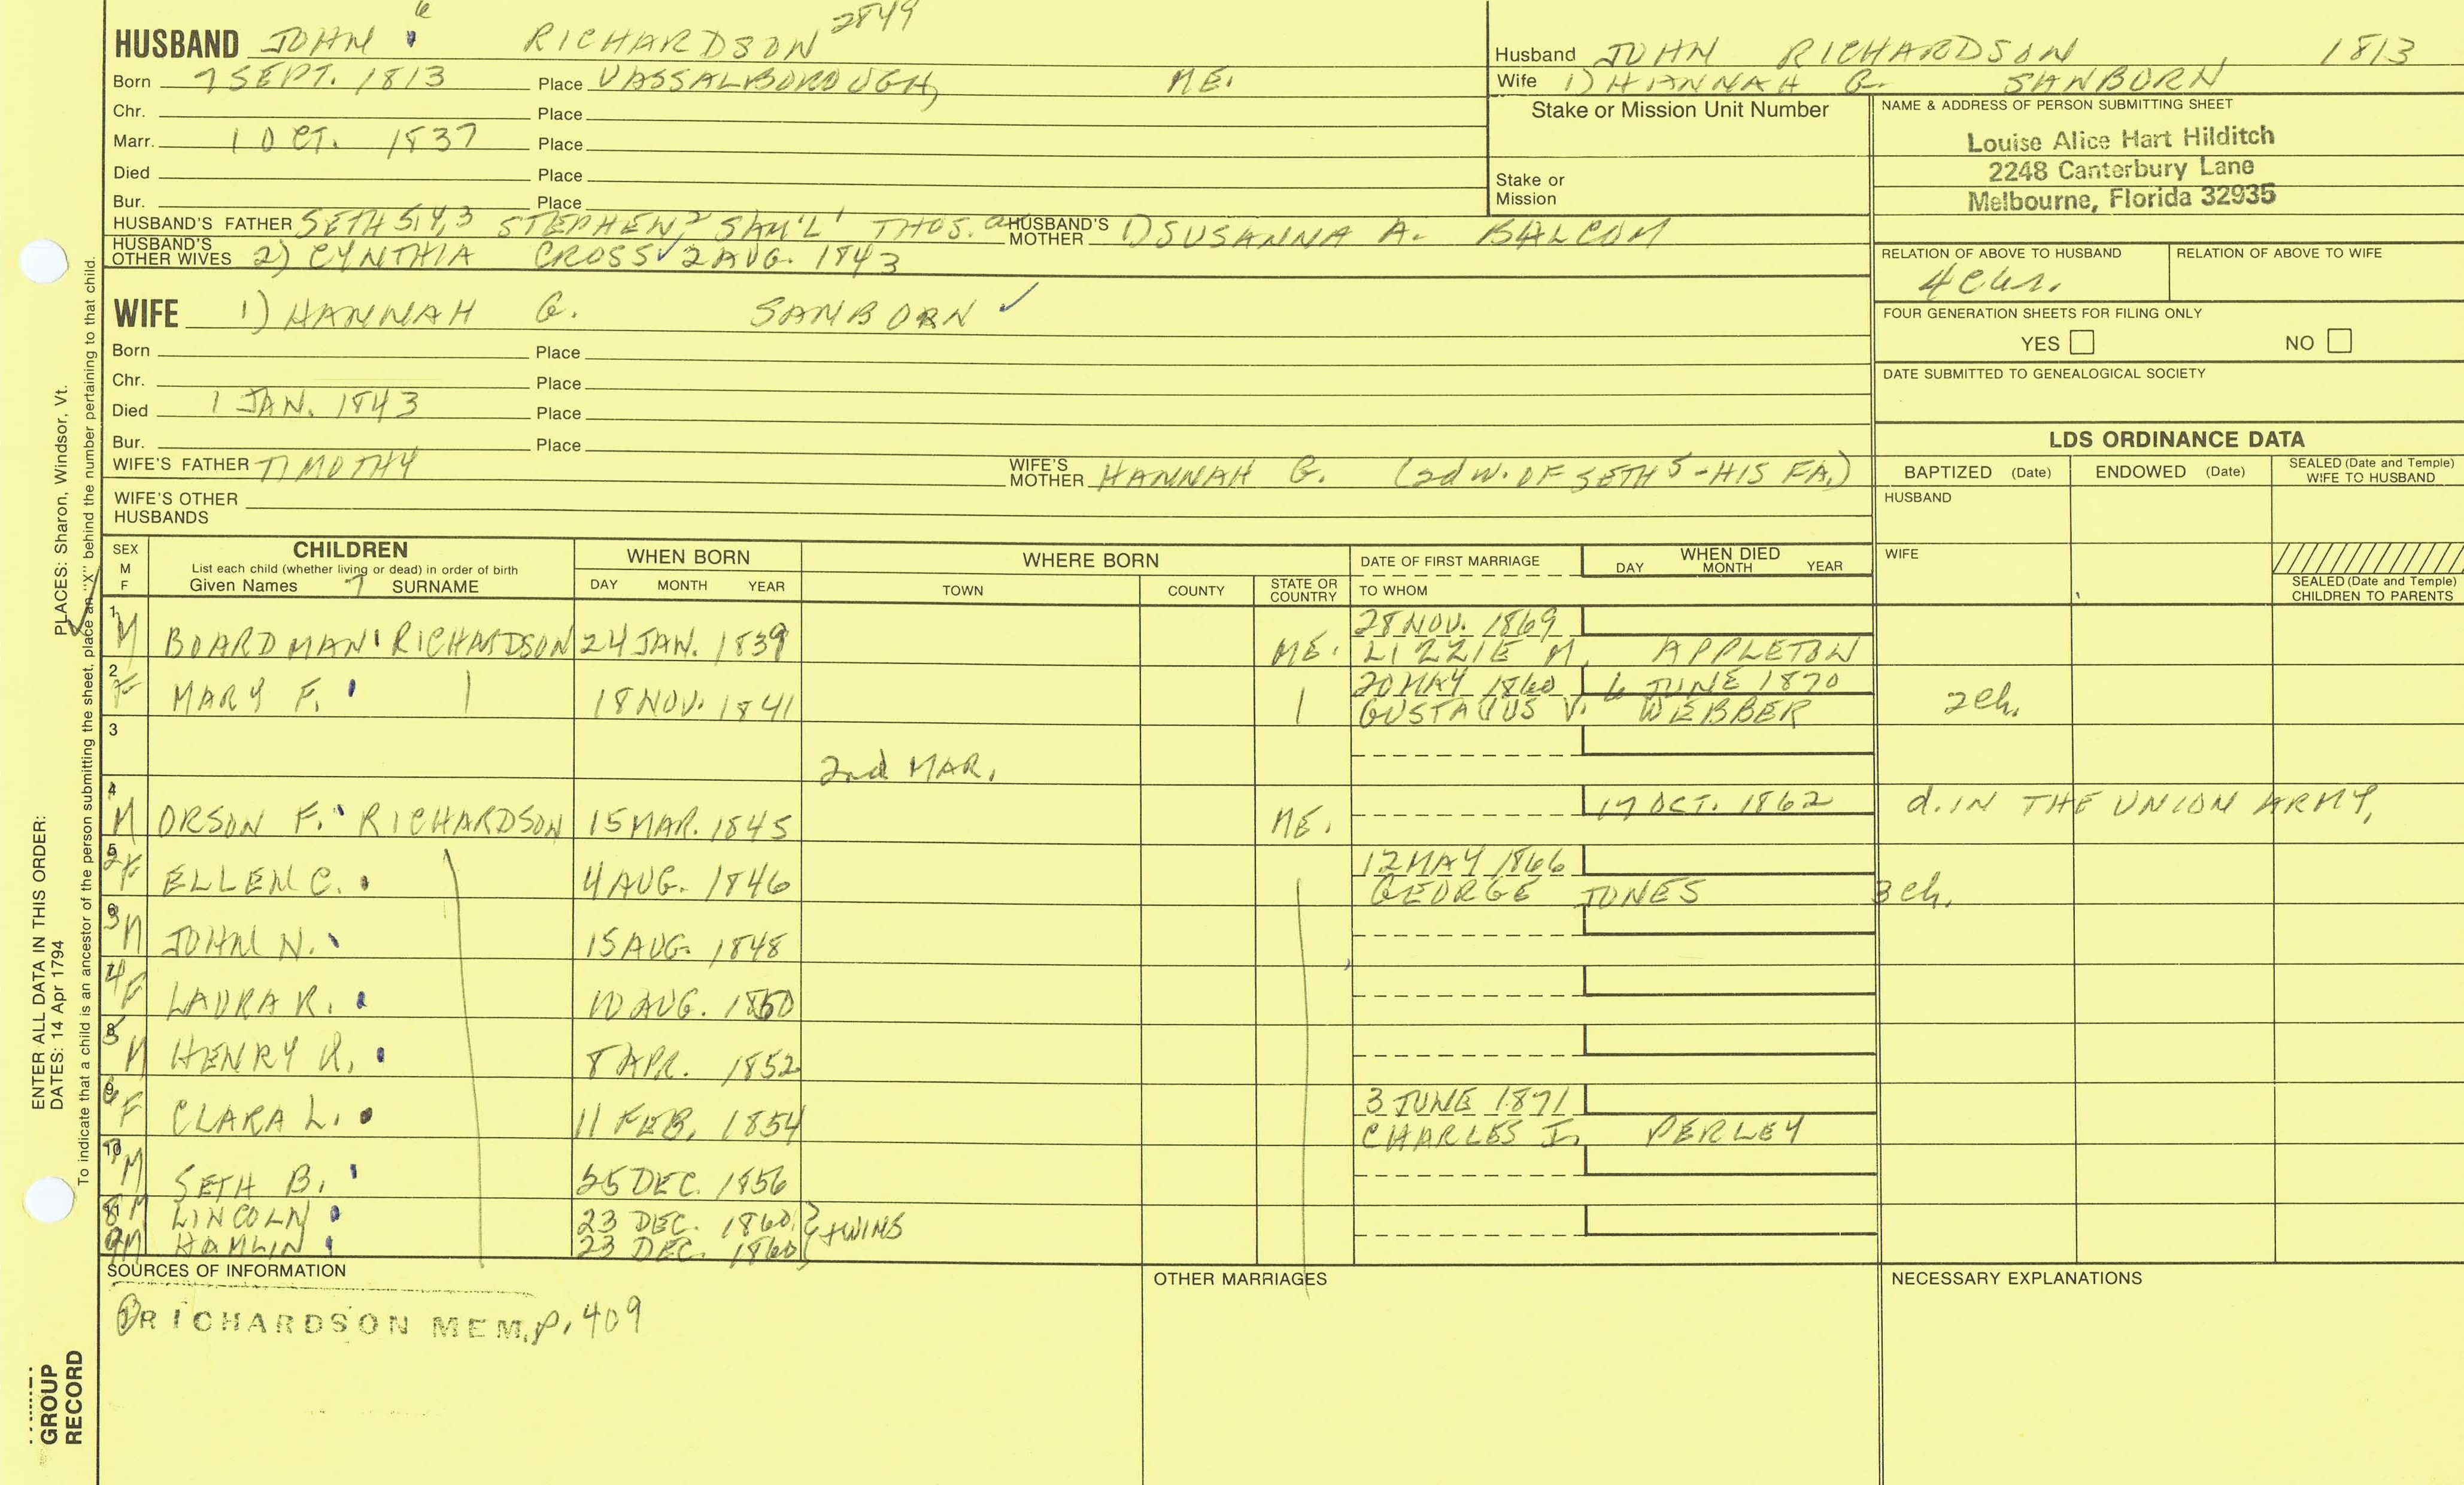 HUSBAND JOHN 6 RICHARDSON 2849
Born 7 SEPT. 1813 Place VASSALBOROUGH, ME.
Chr. Place
Marr. 1 OCT. 1837 Place
Died Place
Bur. Place
HUSBAND'S FATHER SETH 5,4,3 STEPHEN, 2 SAM'L 1 THOS. a HUSBAND'S MOTHER 1) SUSANNA A. BALCOM
HUSBAND'S OTHER WIVES 2) CYNTHIA CROSS ✓ 2 AUG. 1843
WIFE 1) HANNAH G. SANBORN ✓
Born Place
Chr. Place
Died 1 JAN. 1843 Place
Bur. Place
WIFE'S FATHER TIMOTHY WIFE'S MOTHER HANNAH G. (2d W. OF SETH 5 - HIS FA.)
WIFE'S OTHER HUSBANDS
Husband JOHN RICHARDSON 1813
Wife 1) HANNAH G. SANBORN
Stake or Mission Unit Number
Stake or Mission
NAME & ADDRESS OF PERSON SUBMITTING SHEET
Louise Alice Hart Hilditch
2248 Canterbury Lane
Melbourne, Florida 32935
RELATION OF ABOVE TO HUSBAND RELATION OF ABOVE TO WIFE
FOUR GENERATION SHEETS FOR FILING ONLY
YES NO
DATE SUBMITTED TO GENEALOGICAL SOCIETY
LDS ORDINANCE DATA
BAPTIZED (Date) ENDOWED (Date) SEALED (Date and Temple) WIFE TO HUSBAND
HUSBAND
WIFE
SEALED (Date and Temple) CHILDREN TO PARENTS
SEX M F
CHILDREN
List each child (whether living or dead) in order of birth
Given Names 7 SURNAME
WHEN BORN
DAY MONTH YEAR
WHERE BORN
TOWN COUNTY STATE OR COUNTRY
DATE OF FIRST MARRIAGE
TO WHOM
WHEN DIED
DAY MONTH YEAR
1 M BOARDMAN RICHARDSON 24 JAN. 1839 ME. 28 NOV. 1869
LIZZIE M. APPLETON
2 F MARY F. 18 NOV. 1841 20 MAY 1860 6 JUNE 1870 2 ch.
GUSTAVUS V. WEBBER
3 2nd MAR.
4 M ORSON F. RICHARDSON 15 MAR. 1845 ME. 17 OCT. 1862 d. IN THE UNION ARMY,
5 2 F ELLEN C. 4 AUG. 1846 12 MAY 1866 3 ch.
GEORGE JONES
6 3 M JOHN N. 15 AUG. 1848
7 4 F LAURA R. 10 AUG. 1850
8 5 M HENRY 8 APR. 1852
9 6 F CLARA L. 11 FEB. 1854 3 JUNE 1871
CHARLES I. PERLEY
10 M SETH B. 25 DEC. 1856
11 8 M LINCOLN 23 DEC. 1860 } TWINS
9 M HAMLIN 23 DEC. 1860
SOURCES OF INFORMATION
1 RICHARDSON MEM. p. 409
OTHER MARRIAGES
NECESSARY EXPLANATIONS
ENTER ALL DATA IN THIS ORDER:
DATES: 14 Apr 1794
PLACES: Sharon, Windsor, Vt.
To indicate that a child is an ancestor of the person submitting the sheet, place an "X" behind the number pertaining to that child.
GROUP
RECORD